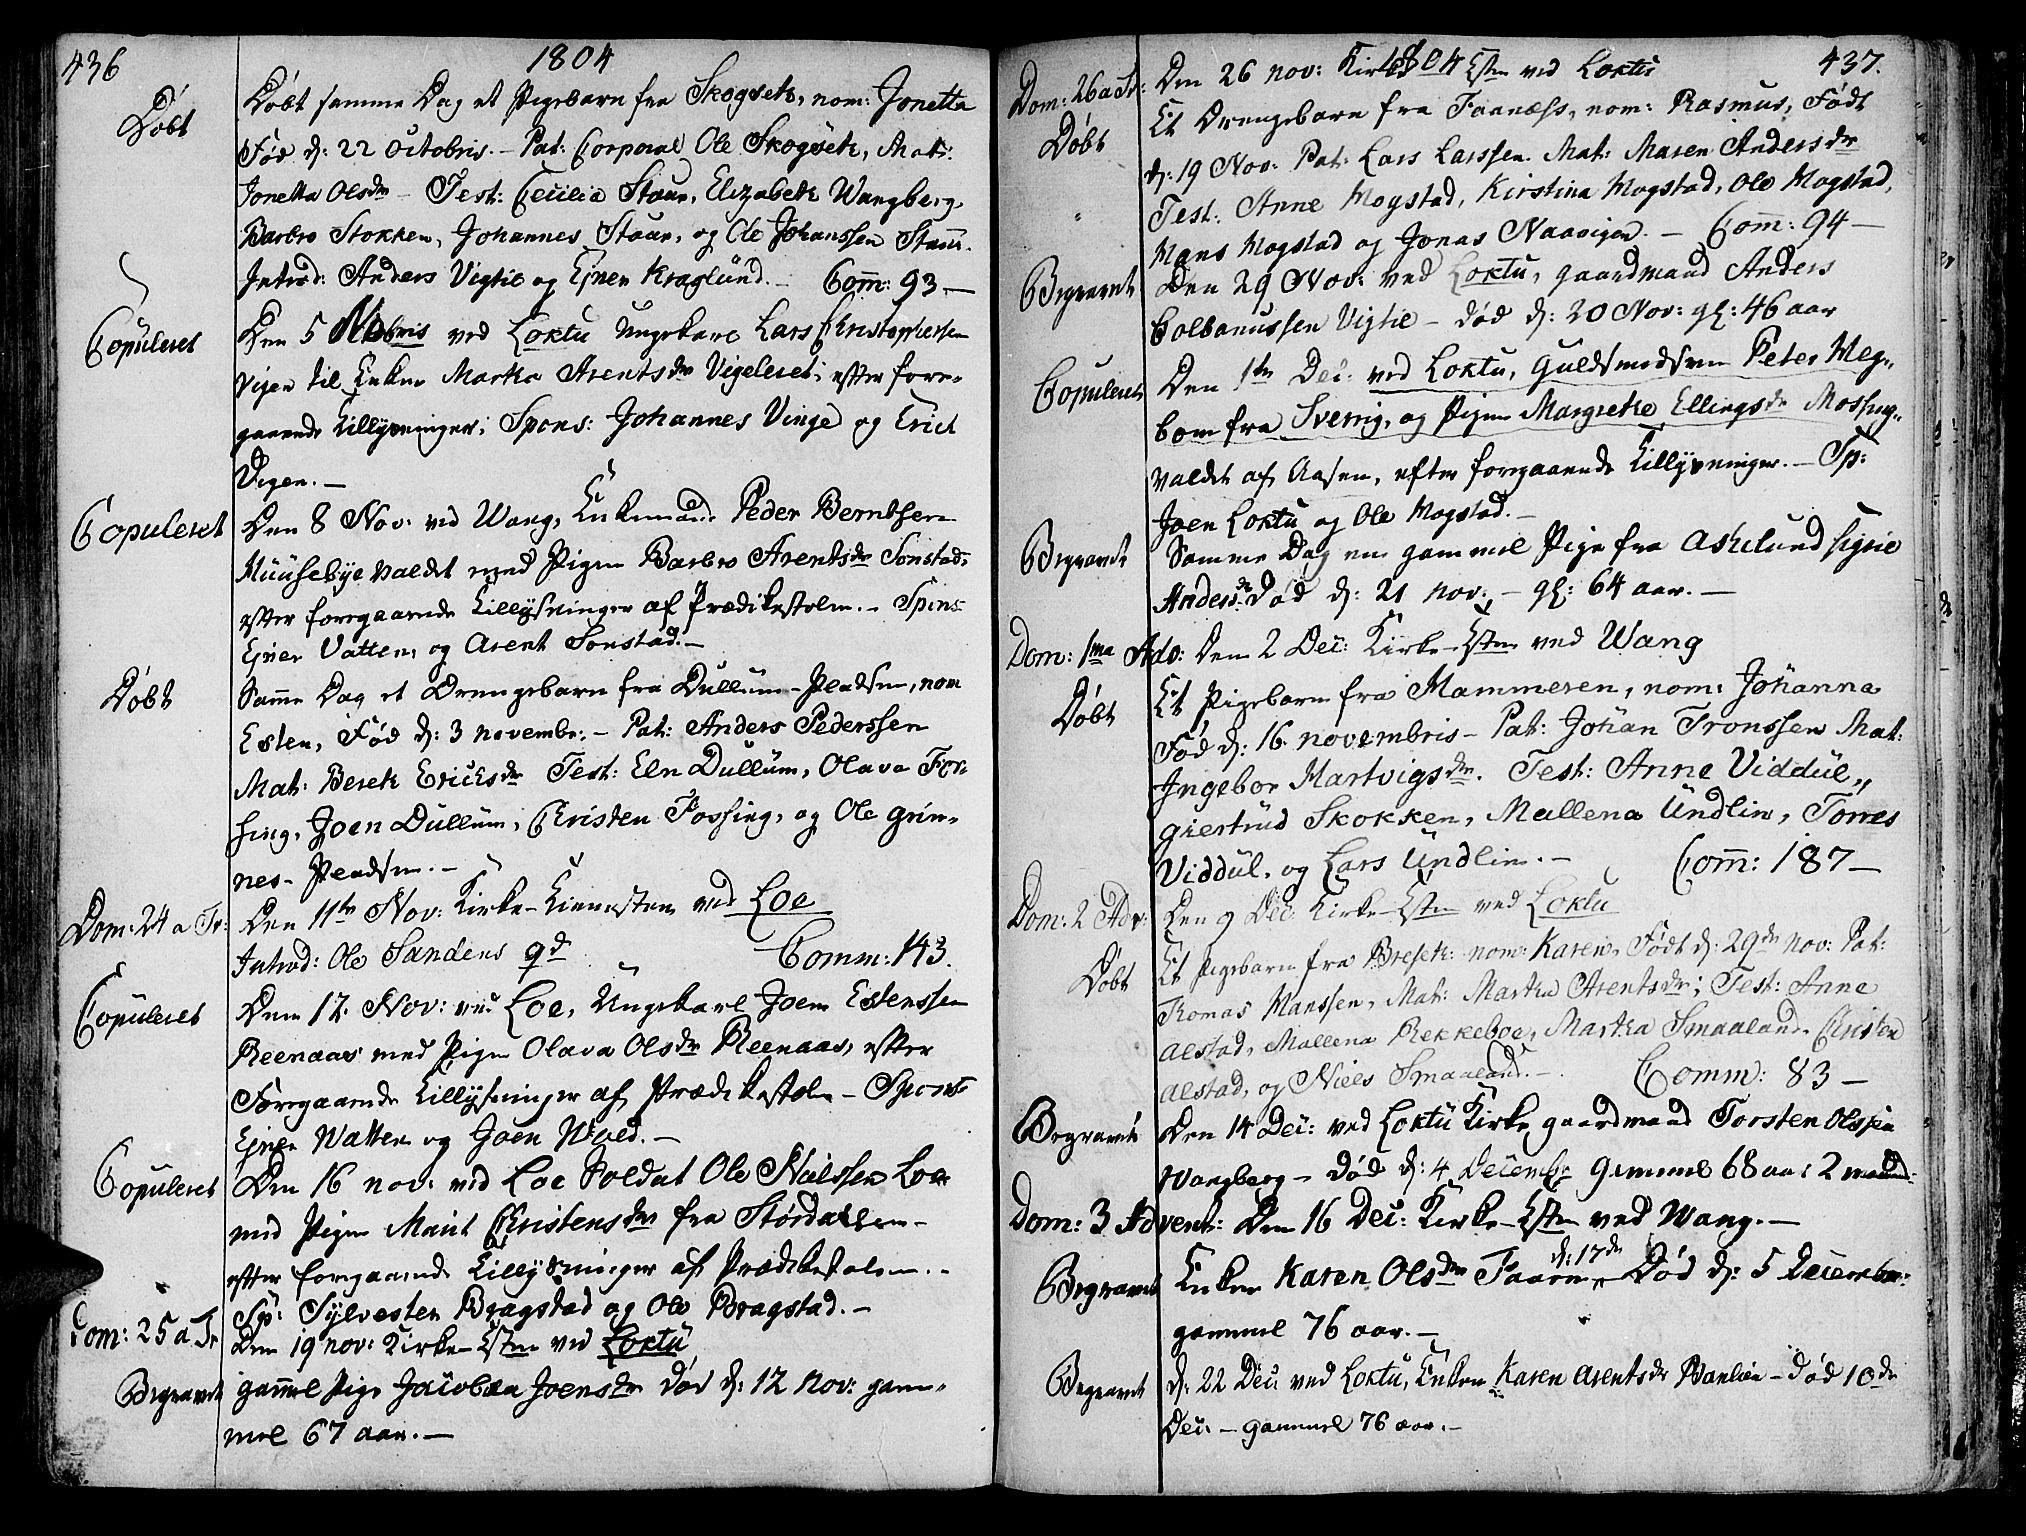 436
1804
Döbt
Döbt samme Dag et Pigebarn fra Skogseth, nom: Jonetta
Fød d: 22 Octobris. - Pat: Corporal Ole Skogseth, Mat:
Jonetta Olsdr - Test: Cecilia Staur, Elizabeth Wangberg,
Barbro Stokken, Johannes Staur, og Ole Johanssen Staur.
Introd: Anders Vigtil og Ejner Kraglund. - Com̄: 93 -
Copuleret
Den 5 Novbris ved Loktu Ungekarl Lars Christophersen
Vigen til Enken Martha Arentsdr Vigeleret; efter fore-
gaaende Tillysninger; Spons: Johannes Vinge og Erich
Vigen. -
Copuleret
Den 8 Nov: ved Wang, Enkemand Peder Berntsen
Muusebye valdet med Pigen Barbro Arentsdr Sonstad,
efter foregaaende Tillysninger af Prædikestolen. - Spons
Ejner Vatten, og Arent Sonstad. -
Döbt
Samme Dag et Drengebarn fra Dullum-Pladsen, nom
Esten, Fød d: 3 novembr: - Pat: Anders Pederssen
Mat: Bereth Ericksdr Test: Eln Dullum, Olava Fos-
sing, Joen Dullum, Christen Fossing, og Ole Grin-
nes-Pladsen. -
Dom: 24 a Tr:
Den 11te Nov: Kirke-Tienesten ved Loe
Introd: Ole Sandens qd
Comm: 143.
Copuleret
Den 12. Nov: ved Loe, Ungekarl Joen Estenssen
Reenaas med Pigen Olava Olsdr Reenaas, efter
Foregaaende Tillysninger af Prædikestolen - Spons
Ejner Watten og Joen Woed. -
Copuleret
Den 16 nov: ved Loe Soldat Ole Nielssen Loe
med Pigen Marit Christensdr fra Stördalen -
efter foregaaende Tillysninger af Prædikestolen. -
Sp: Sylvester Bragstad og Ole Bragstad. -
Dom: 25 a Tr
Den 19 nov: Kirke-Tsten ved Loktu
Begravet
gam̄el Pige Jacobæa Joensdr død d: 12 Nov: gam-
mel 67 aar. -
437.
1804
Dom: 26 a Tr:
Den 26 nov: Kirke Tsten ved Loktu
Döbt
Et Drengebarn fra Faanæss, nom: Rasmus, Födt
d: 19 Nov: Pat: Lars Larssen Mat: Maren Andersdr
Test: Anne Mogstad, Kirstina Mogstad, Ole Mogstad,
Hans Mogstad og Jonas Naavigen. - Com̄: 94 -
Begravet
Den 29 Nov: ved Loktu, gaardmand Anders
Colbanussen Vigtil - død d: 20 Nov: gl: 46 aar
Copuleret
Den 1te Dec: ved Loktu, Guldsmedsven Peter Weg-
bom fra Sverrig, og Pigen Margrethe Ellingsdr Mossing-
valdet af Aasen, efter foregaaende Tillysninger. - Sp:
Joen Loktu og Ole Mogstad. -
Begravet
Samme Dag en gammel Pige fra Askelund Sigrie
Andersdr død d: 21 nov: - gl: 64 aar. -
Dom: 1ma Adv: Den 2 Dec: Kirke-Tsten ved Wang
Döbt
Et Pigebarn fra Hammeren, nom: Johanna
Fød d: 16 novembris - Pat: Johan Tronssen Mat:
Ingebor Hartvigsdr. Test: Anne Viddul,
Giertrud Skokken, Mallena Undlin, Torres
Viddul, og Lars Undlin. - Com̄: 187 -
Dom: 2 Adv:
Den 9 Dec: Kirke-Tsten ved Loktu
Döbt
Et Pigebarn fra Breseth: nom: Karen, Födt d: 29de nov: Pat:
Thomas Hanssen, Mat: Martha Arentsdr; Test: Anne
Alstad, Mallena Rekkeboe, Martha Smaaland, Christen
Alstad, og Niels Smaaland. - Comm: 83 -
Begravet
Den 14 Dec: ved Loktu Kirke, gaardmand Torsten Olssen
Wangberg - død d: 4 Decembr gammel 68 aar 2 maaned:
Dom: 3 Advent: Den 16 Dec: Kirke-Tsten ved Wang. -
Begravet
d: 17de
Enken Karen Olsdr Faaren - død d: 5 December:
gammel 76 aar. -
Begravet
d: 22 Dec: ved Loktu, Enken Karen Arentsdr Ranlien - død 10de
Dec: - gammel 76 aar. -